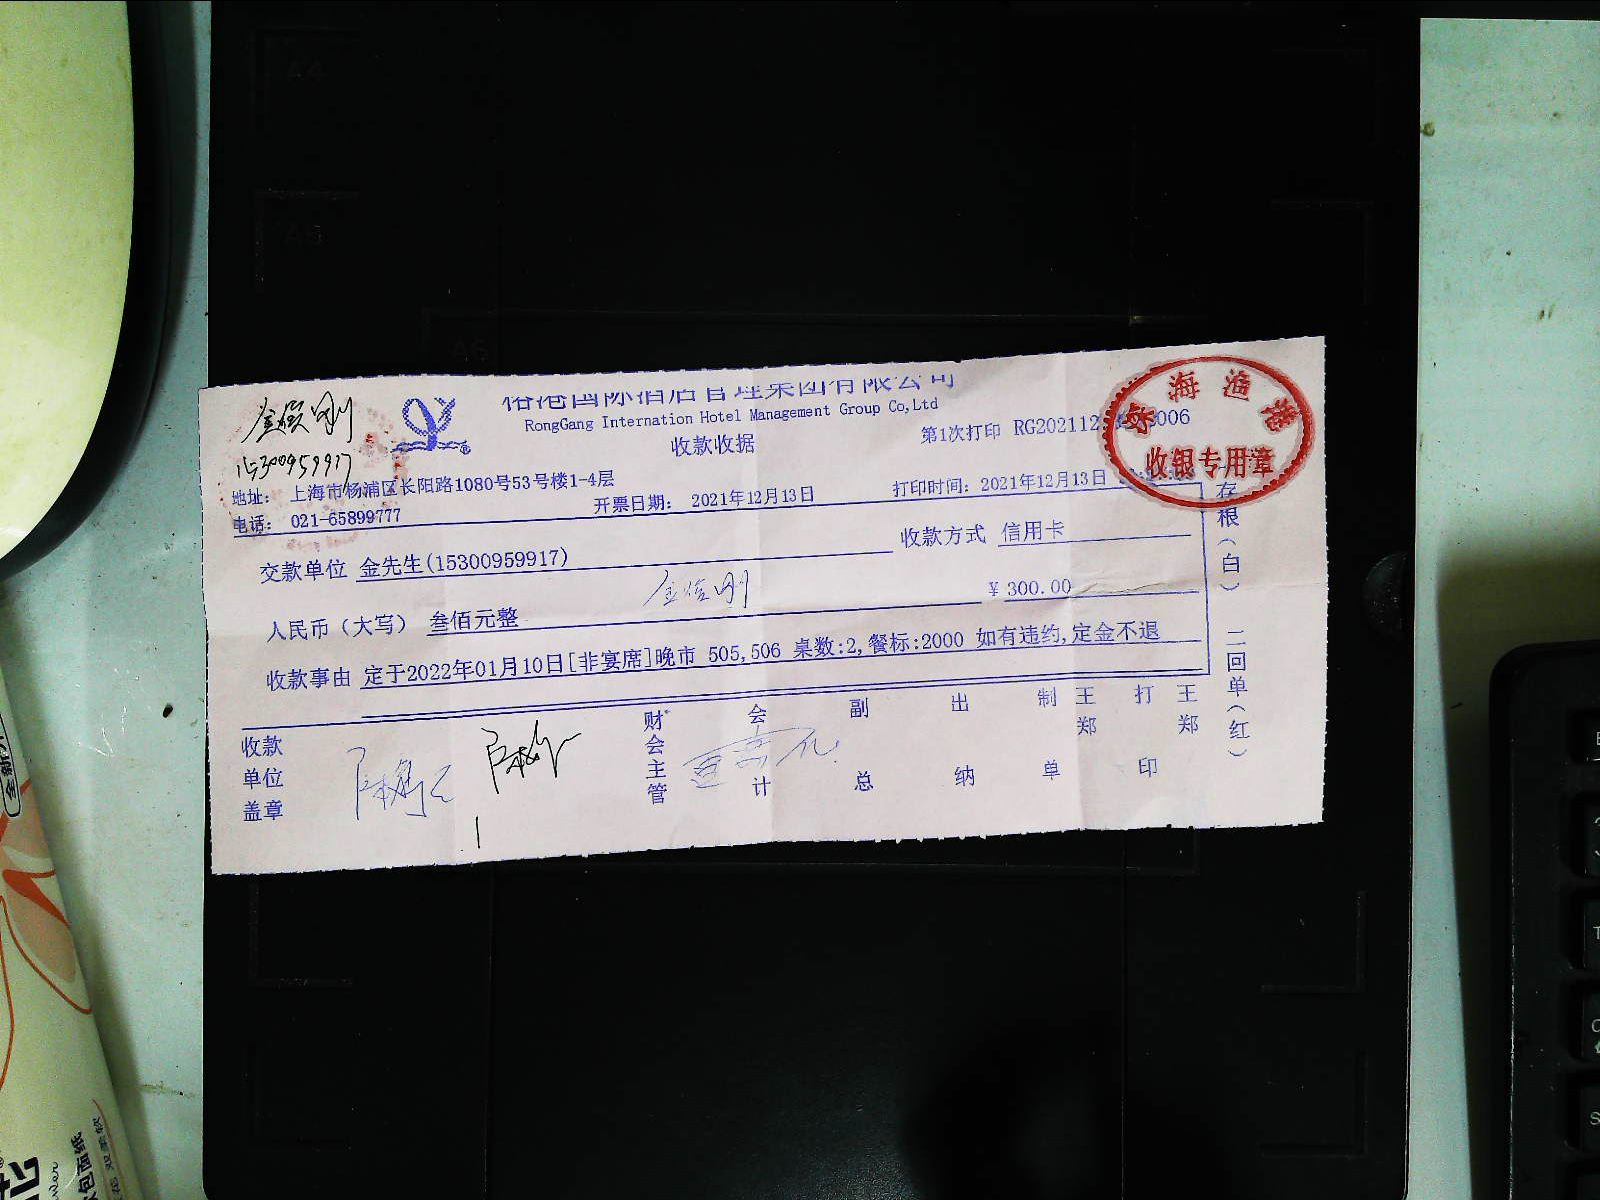 国际酒店管理集团有限公司
RongGang Internation Hotel Management Group Co,Ltd
收款收据
第1次打印 RG202112 006
东海渔港
收银专用章
15300959917
地址: 上海市杨浦区长阳路1080号53号楼1-4层
电话: 021-65899777
开票日期: 2021年12月13日
打印时间: 2021年12月13日
交款单位 金先生(15300959917)
收款方式 信用卡
人民币(大写) 叁佰元整
¥ 300.00
收款事由 定于2022年01月10日[非宴席]晚市 505,506 桌数:2,餐标:2000 如有违约,定金不退
收款单位盖章
财会主管
会计
副总
出纳
制单
王郑
打印
王郑
存根(白) 二回单(红)
A4
A5
A6